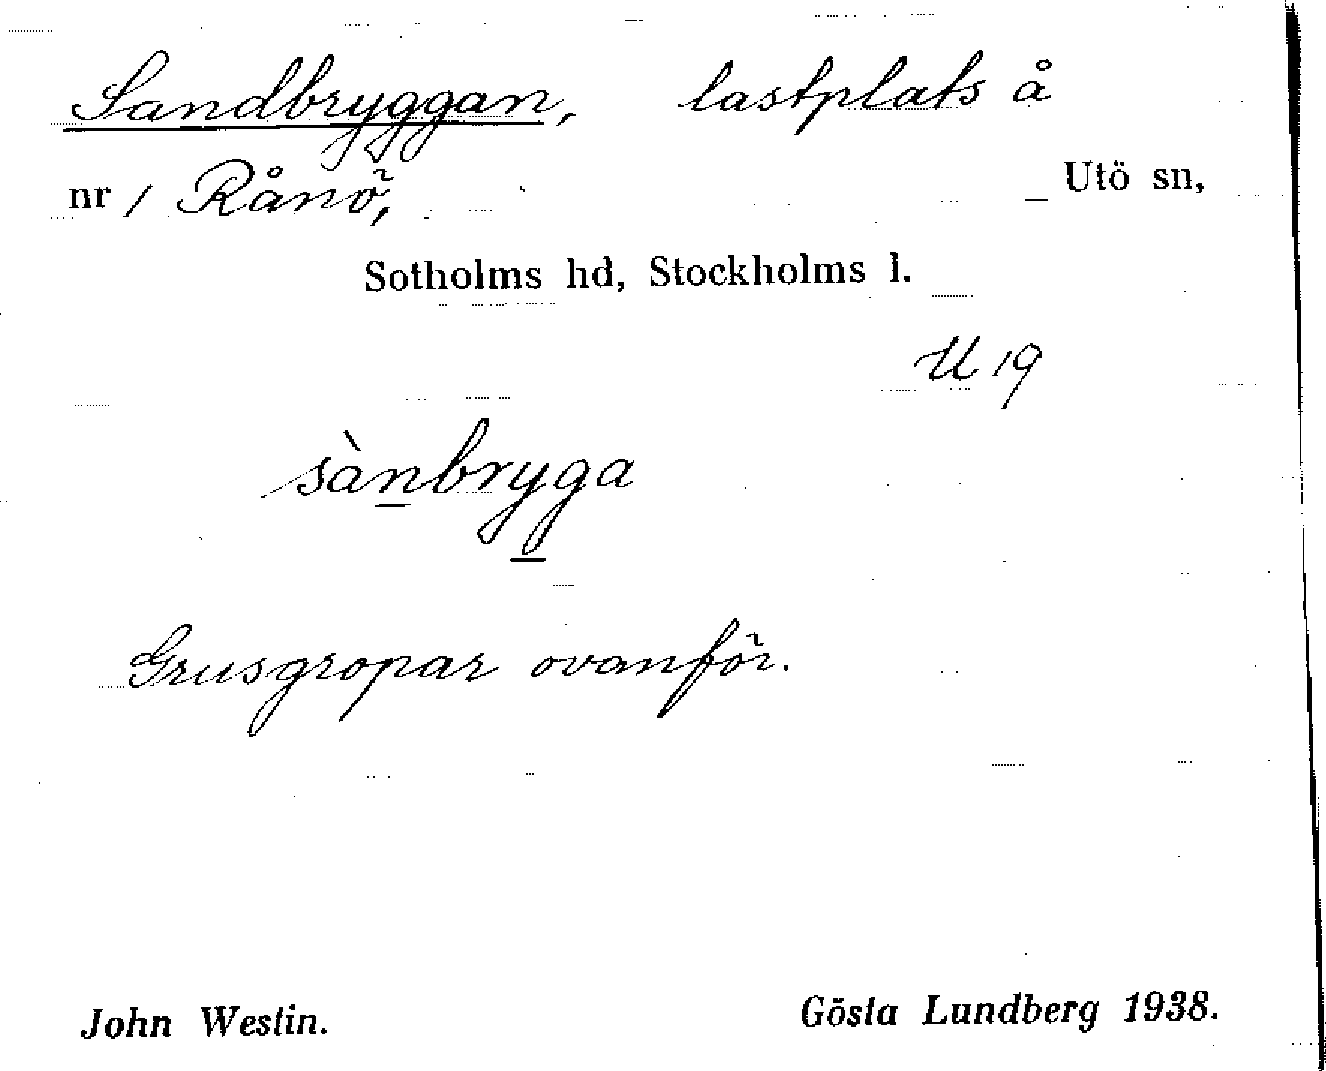 Sandbryggan, lastplats å
nr 1 Rånö, Utö sn,
Sotholms hd, Stockholms l.
U 19
sànbryga
Grusgropar ovanför.
John Westin. Gösta Lundberg 1938.